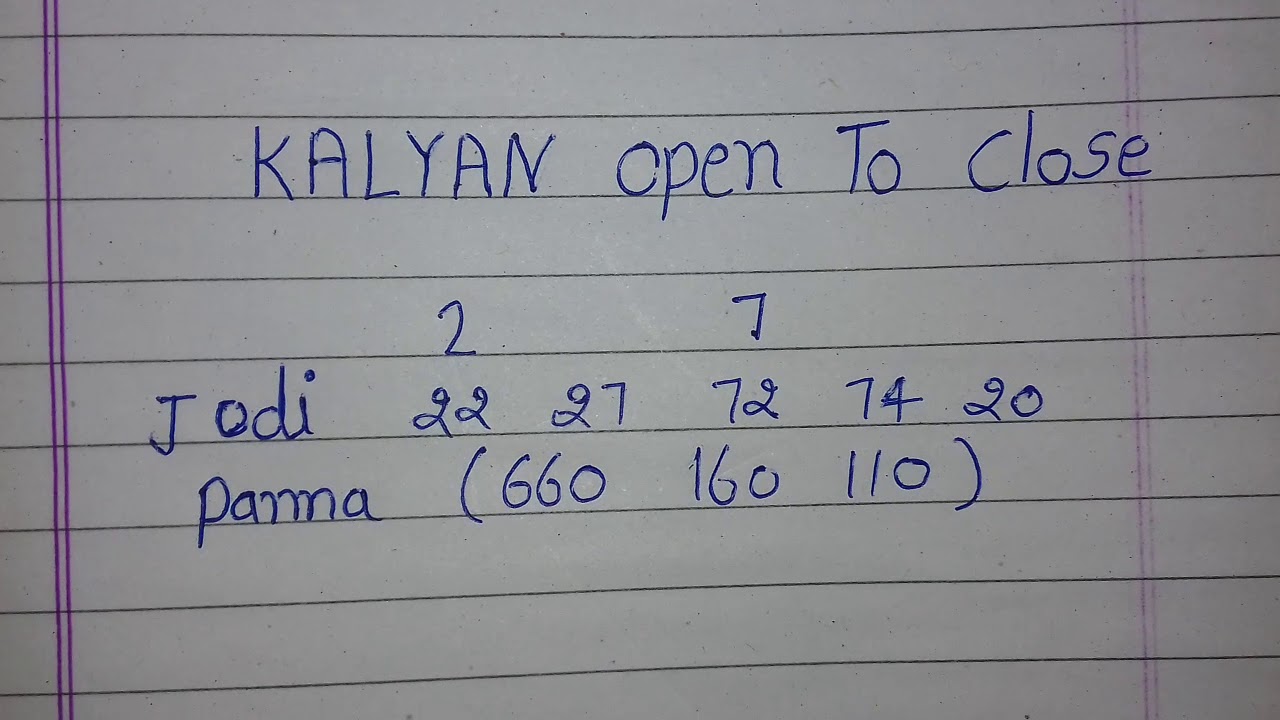 KALYAN open To Close
2 7
Jodi 22 27 72 74 20
panna (660 160 110)